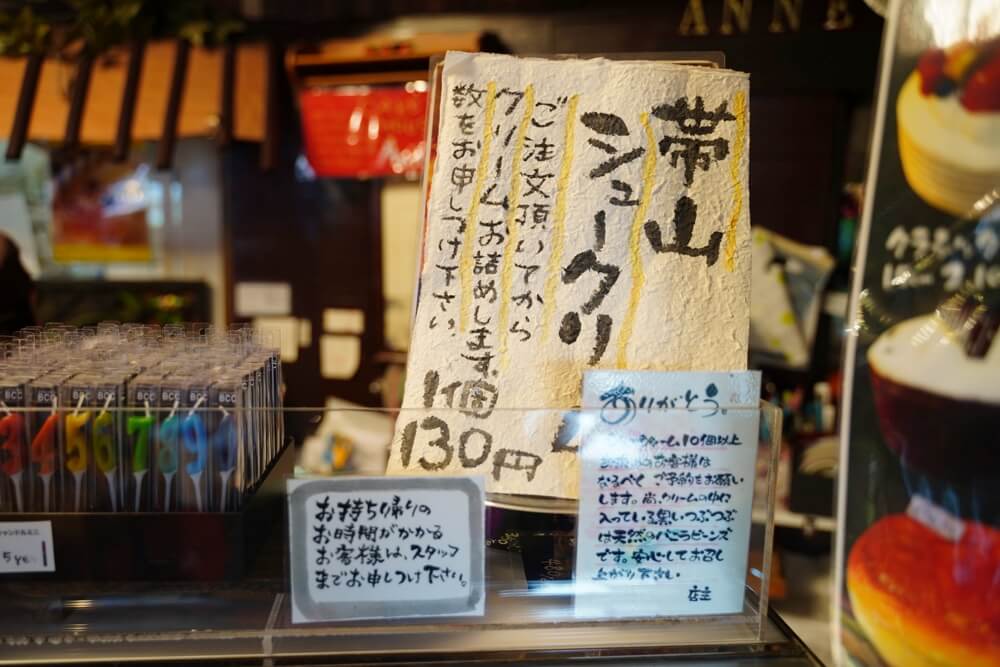 ANNE
帯山
シュークリーム
ご注文頂いてから
クリームお詰めします。
数をお申しつけ下さい。
1個
130円
ありがとう。
クリーム、10個以上
お客様は
なるべく ご予約をお願い
します。尚、クリームの中に
入っている黒いつぶつぶ
は天然のバニラビーンズ
です。安心してお召し
上がり下さい。
店主
お持ち帰りの
お時間がかかる
お客様は、スタッフ
までお申しつけ下さい。
BCC
BCC
BCC
BCC
3
4
5
6
7
8
9
0
5
クラシック